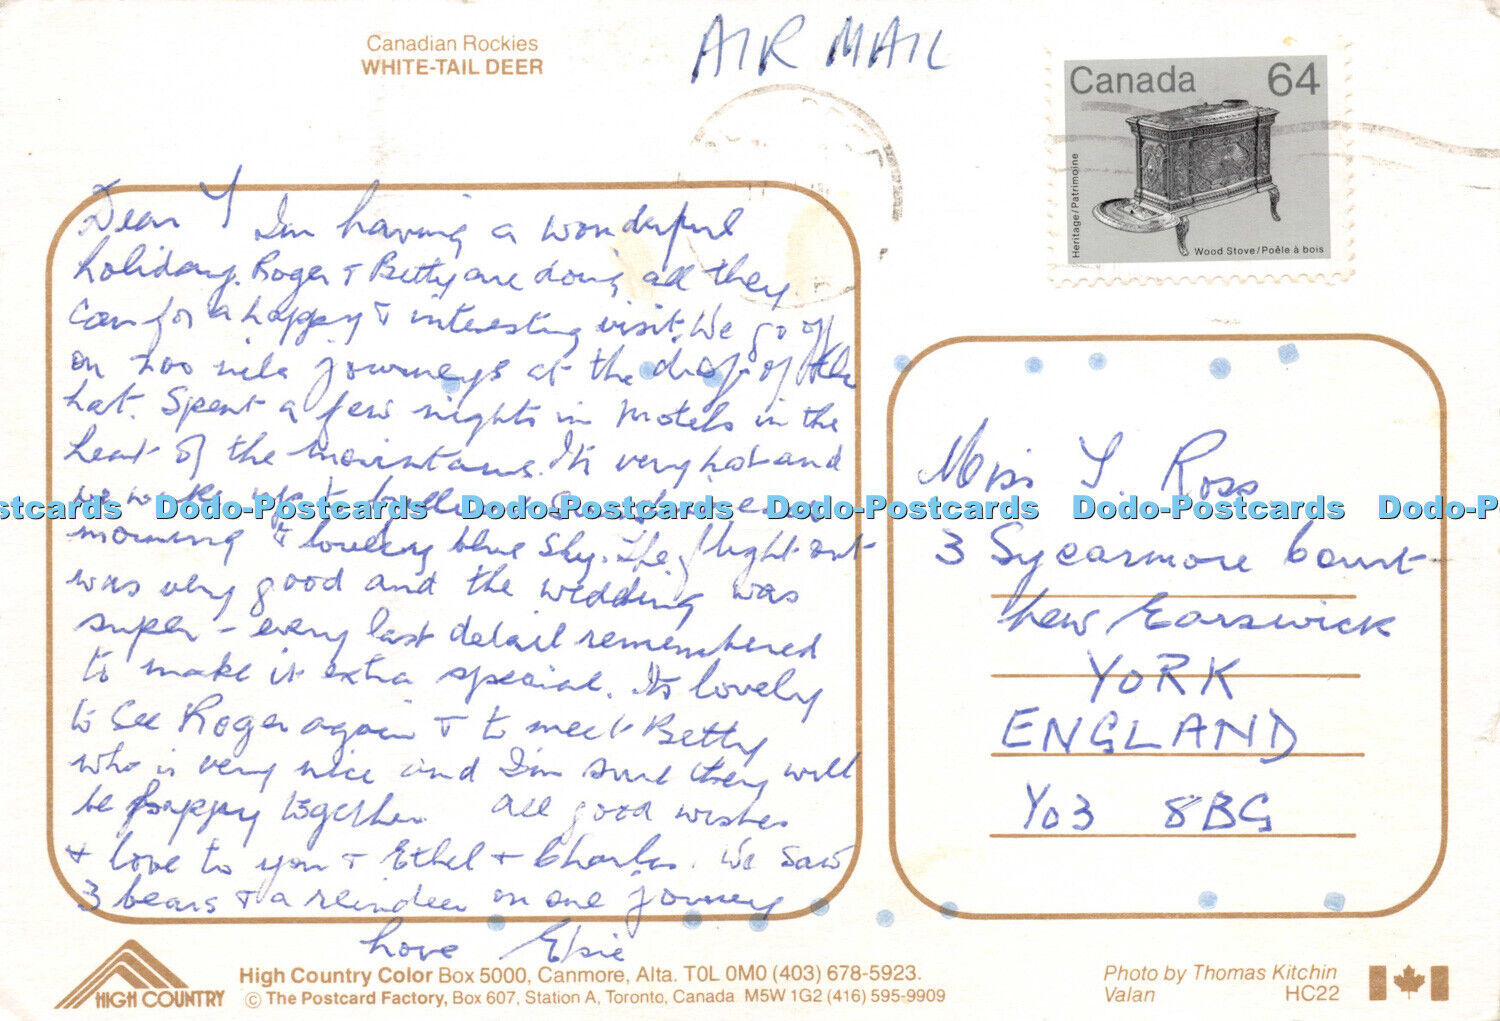 Canadian Rockies
WHITE-TAIL DEER
AIR MAIL
Canada 64
Heritage/Patrimoine
Wood Stove/Poêle à bois
Dear Y I'm having a wonderful
holiday. Roger & Betty are doing all they
can for a happy & interesting visit. We go off
on 200 mile journeys at the drop of the
hat. Spent a few nights in Motels in the
heart of the mountains. It's very hot and
we wake up to brilliant Sunshine every
morning & lovely blue sky. The flight out
was very good and the wedding was
super - every last detail remembered
to make it extra special. Its lovely
to see Roger again & to meet Betty
who is very nice and I'm sure they will
be happy together. All good wishes
& love to you & Ethel & Charles. We saw
3 bears & a reindeer on one journey
Love Elsie
Miss Y. Ross
3 Sycarmore Court
New Earswick
YORK
ENGLAND
YO3 8BG
Dodo-Postcards Dodo-Postcards Dodo-Postcards Dodo-Postcards
HIGH COUNTRY
High Country Color Box 5000, Canmore, Alta. T0L 0M0 (403) 678-5923.
© The Postcard Factory, Box 607, Station A, Toronto, Canada M5W 1G2 (416) 595-9909
Photo by Thomas Kitchin
Valan HC22